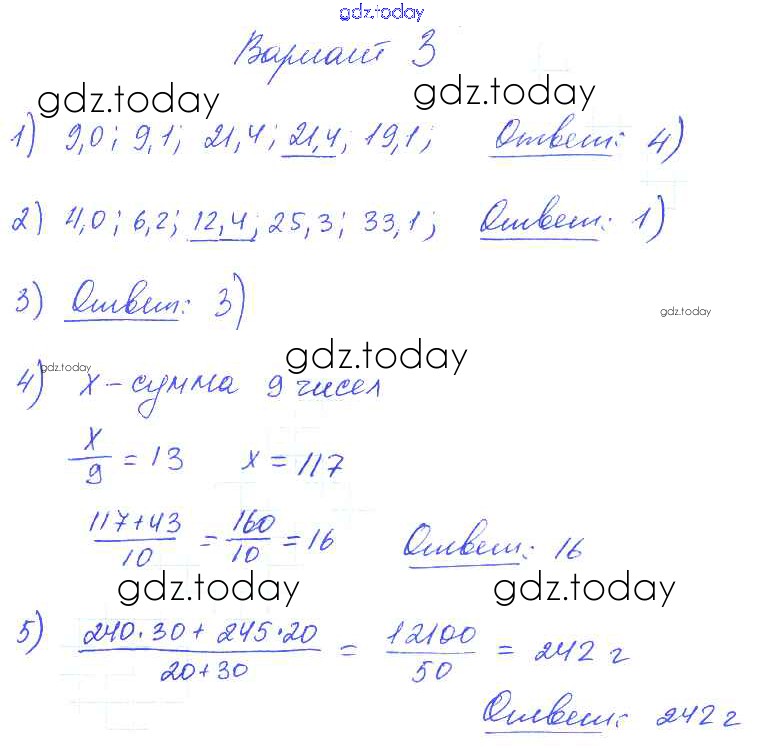 gdz.today
Вариант 3
gdz.today gdz.today
1) 9,0; 9,1; 21,4; 21,4; 19,1; Ответ: 4)
2) 4,0; 6,2; 12,4; 25,3; 33,1; Ответ: 1)
3) Ответ: 3)
gdz.today
gdz.today
gdz.today
4) x - сумма 9 чисел
x/9 = 13 x = 117
(117+43)/10 = 160/10 = 16 Ответ: 16
gdz.today gdz.today
5) (240·30 + 245·20)/(20+30) = 12100/50 = 242 г
Ответ: 242 г